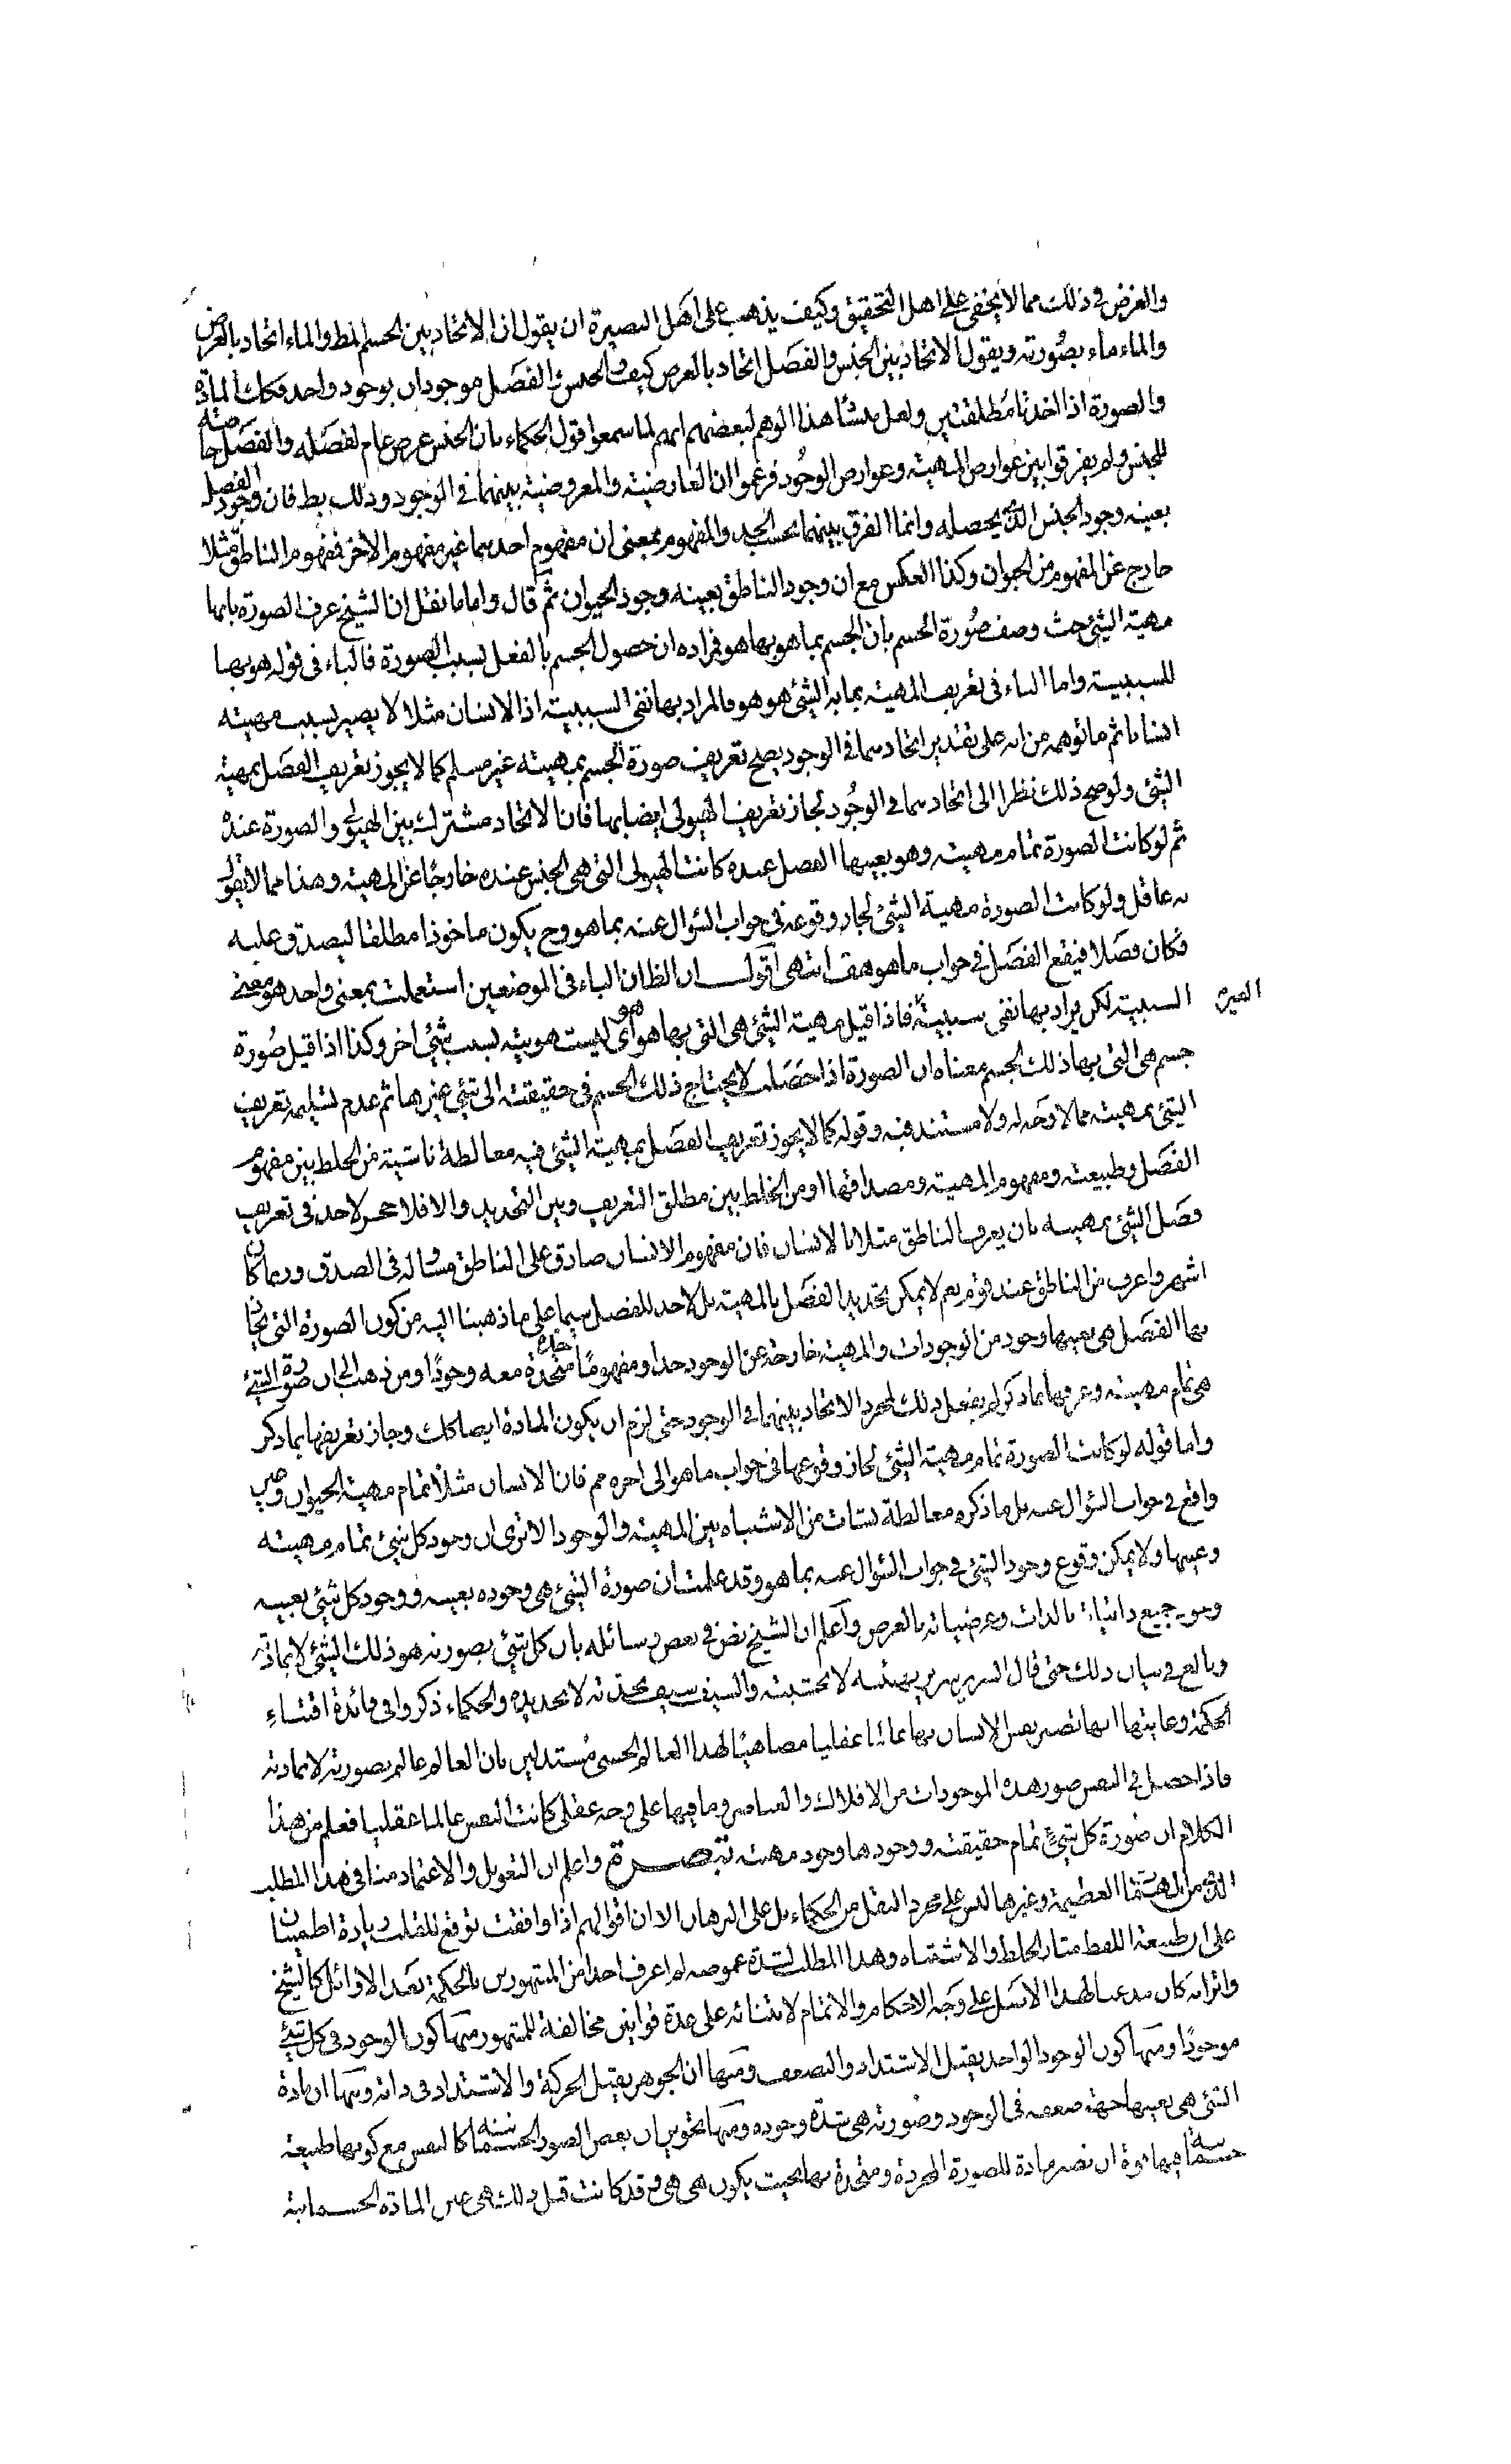 والغرض فى ذلك مما لا يخفى على اهل التحقيق وكيف يذهب على اهل البصيرة ان يقول ان الاتحاد بين الجسم المط والماء اتحاد بالعرض
والماء ماء بصورته ويقول الاتحاد بين الجنس والفصل اتحاد بالعرض كيف والجنس والفصل موجودان بوجود واحد فكك المادة
والصورة اذا اخذتا مطلقتين ولعل منشا هذا الوهم لبعضهم انهم لما سمعوا قول الحكماء بان الجنس عرض عام لفصله والفصل خاصته
للجنس ولم يفرقوا بين عوارض المهية وعوارض الوجود فزعموا ان العارضية والمعروضية بينهما فى الوجود وذلك بط فان وجود الفصل
بعينه وجود الجنس الذى يحصله وانما الفرق بينهما بحسب الحد والمفهوم بمعنى ان مفهوم احدهما غير مفهوم الاخر فمفهوم الناطق مثلا
خارج عن المفهوم من الحيوان وكذا العكس مع ان وجود الناطق بعينه وجود الحيوان ثم قال واما ما نقل ان الشيخ عرف الصورة بانها
مهية الشئ حيث وصف صورة الجسم بان الجسم بما هو بها هو فمراده ان حصول الجسم بالفعل بسبب الصورة فالباء فى قوله هو بها
للسببية واما الباء فى تعريف المهية بما به الشئ هو هو فالمراد بها نفى السببية اذ الانسان مثلا لا يصير بسبب مهيته
انسانا ثم ما توهمه من انه على تقدير اتحادهما فى الوجود يصح تعريف صورة الجسم بمهيته غير مسلم كما لا يجوز تعريف الفصل بمهية
الشئ ولو صح ذلك نظرا الى اتحادهما فى الوجود لجاز تعريف الهيولى ايضا بها فان الاتحاد مشترك بين الهيولى والصورة عنده
ثم لو كانت الصورة تمام مهيته وهو بعينها الفصل عنده كانت الهيولى التى هى الجنس عنده خارجا عن المهية وهذا مما لا يقول
به عاقل ولو كانت الصورة مهية الشئ لجاز وقوعه فى جواب السؤال عنه بما هو وح يكون ماخوذا مطلقا ليصدق عليه
فكان فصلا فيقع الفصل فى جواب ما هو هف انتهى اقول ان الظ ان الباء فى الموضعين استعملت بمعنى واحد هو معنى
السببية لكن يراد بها نفى سببية الغير فاذا قيل مهية الشئ هى التى بها هو هو اى ليست هويته بسبب شئ اخر وكذا اذا قيل صورة
جسم هى التى بها ذلك الجسم معناه ان الصورة اذا حصلت لا يحتاج ذلك الجسم فى حقيقته الى شئ غيرها ثم عدم تسليمه تعريف
الشئ بمهيته مما لا وجه له ولا مستند فيه وقوله كما لا يجوز تعريف الفصل بمهية الشئ فيه مغالطة ناشية من الخلط بين مفهوم
الفصل وطبيعته ومفهوم المهية ومصداقها او من الخلط بين مطلق التعريف وبين التحديد والا فلا حجر لاحد فى تعريف
فصل الشئ بمهيته بان يعرف الناطق مثلا بالانسان فان مفهوم الانسان صادق على الناطق ومساو له فى الصدق وربما كان
اشهر واعرف من الناطق عند قوم نعم لا يمكن تحديد الفصل بالمهية بل لا حد للفصل سيما على ما ذهبنا اليه من كون الصورة التى يحاذى
بها الفصل هى بعينها وجود من الوجودات والمهية خارجة عن الوجود حدا ومفهوما متحدة معه وجودا ومن ذهب الى ان صورة الشئ
هى تمام مهيته وعرفها بما ذكر لم يفعل ذلك لمجرد الاتحاد بينهما فى الوجود حتى لزم ان يكون المادة ايضا كك وجاز تعريفها بما ذكر
واما قوله لو كانت الصورة تمام مهية الشئ لجاز وقوعها فى جواب ما هو الى اخره مم فان الانسان مثلا تمام مهية الحيوان وغير
واقع فى جواب السؤال عنه بل ما ذكره مغالطة نشات من الاشتباه بين المهية والوجود الا ترى ان وجود كل شئ تمام مهيته
وعينها ولا يمكن وقوع وجود الشئ فى جواب السؤال عنه بما هو وقد علمت ان صورة الشئ هى وجوده بعينه ووجود كل شئ بعينه
وهويه جميع ذاتياته بالذات وعرضياته بالعرض واعلم ان الشيخ نص فى بعض رسائله بان كل شئ بصورته هو ذلك الشئ لا بمادته
وبالغ فى بيان ذلك حتى قال السرير سرير بهيئته لا بخشبته والسيف سيف بحدته لا بحديده والحكماء ذكروا فى فائدة اقتناء
الحكمة وغايتها انها تصير نفس الانسان بها عالما عقليا مضاهيا لهذا العالم الحسى مستدلين بان العالم عالم بصورته لا بمادته
فاذا حصل فى النفس صور هذه الموجودات من الافلاك والعناصر وما فيها على وجه عقلى كانت النفس عالما عقليا فعلم من هذا
الكلام ان صورة كل شئ تمام حقيقته ووجودها وجود مهيته تبصرة واعلم ان التعويل والاعتماد منا فى هذا المطلب
الذى من المهمات العظيمة وغيرها ليس على مجرد النقل من الحكماء بل على البرهان الا ان اقوالهم اذا وافقت توقع للقلب زيادة اطمينان
على ان طبيعة اللفظ مثار الخلط والاشتباه وهذا المطلب لشدة غموضه لم اعرف احدا من المشهورين بالحكمة بعد الاوائل كالشيخ
واترابه كان مذعنا لهذا الاصل على وجه الاحكام والاتمام لابتنائه على عدة قوانين مخالفة للمشهور منها كون الوجود فى كل شئ
موجودا ومنها كون الوجود الواحد يقبل الاشتداد والتضعف ومنها ان الجوهر يقبل الحركة والاشتداد فى ذاته ومنها ان مادة
الشئ هى بعينها جهة ضعفه فى الوجود وصورته هى شدة وجوده ومنها تجويز ان بعض الصور الجسمانية كالنفس مع كونها طبيعة
جسمانية فيها قوة ان تصير مادة للصورة المجردة ومتحدة بها بحيث يكون هى هى وقد كانت قبل ذلك هى عين المادة الجسمانية